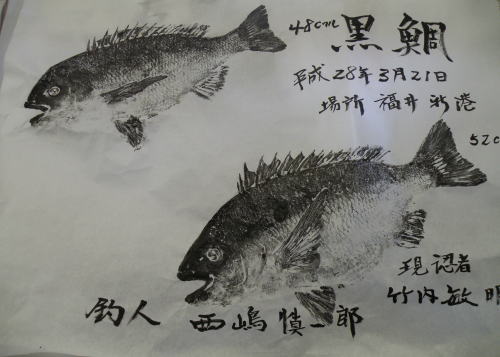 48cm
黒鯛
平成28年3月21日
場所 福井新港
52c
現認者
竹内敏明
釣人 西嶋慎一郎